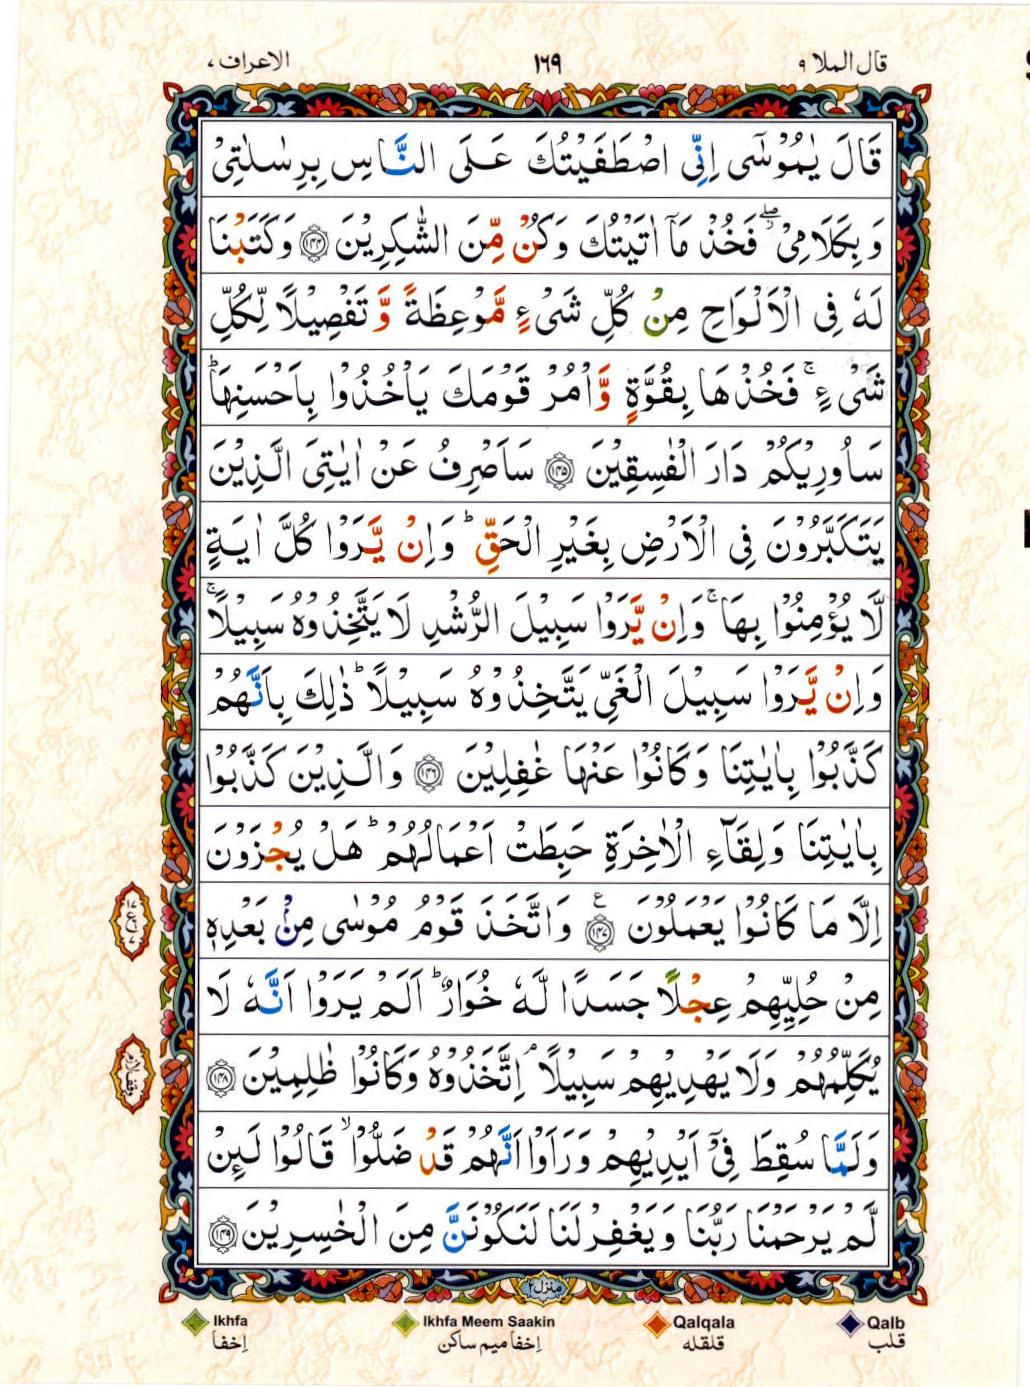 قال الملا ۹
۱۶۹
الاعراف ۷
قَالَ یٰمُوْسٰۤی اِنِّی اصْطَفَیْتُكَ عَلَی النَّاسِ بِرِسٰلٰتِیْ
وَ بِكَلَامِیْ ۖ فَخُذْ مَاۤ اٰتَیْتُكَ وَكُنْ مِّنَ الشّٰكِرِیْنَ ﴿۱۴۴﴾ وَكَتَبْنَا
لَهٗ فِی الْاَلْوَاحِ مِنْ كُلِّ شَیْءٍ مَّوْعِظَةً وَّ تَفْصِیْلًا لِّكُلِّ
شَیْءٍ ۚ فَخُذْهَا بِقُوَّةٍ وَّاْمُرْ قَوْمَكَ یَاْخُذُوْا بِاَحْسَنِهَا ؕ
سَاُورِیْكُمْ دَارَ الْفٰسِقِیْنَ ﴿۱۴۵﴾ سَاَصْرِفُ عَنْ اٰیٰتِیَ الَّذِیْنَ
یَتَكَبَّرُوْنَ فِی الْاَرْضِ بِغَیْرِ الْحَقِّ ؕ وَاِنْ یَّرَوْا كُلَّ اٰیَةٍ
لَّا یُؤْمِنُوْا بِهَا ۚ وَاِنْ یَّرَوْا سَبِیْلَ الرُّشْدِ لَا یَتَّخِذُوْهُ سَبِیْلًا ۚ
وَاِنْ یَّرَوْا سَبِیْلَ الْغَیِّ یَتَّخِذُوْهُ سَبِیْلًا ؕ ذٰلِكَ بِاَنَّهُمْ
كَذَّبُوْا بِاٰیٰتِنَا وَكَانُوْا عَنْهَا غٰفِلِیْنَ ﴿۱۴۶﴾ وَالَّذِیْنَ كَذَّبُوْا
بِاٰیٰتِنَا وَلِقَآءِ الْاٰخِرَةِ حَبِطَتْ اَعْمَالُهُمْ ؕ هَلْ یُجْزَوْنَ
اِلَّا مَا كَانُوْا یَعْمَلُوْنَ ﴿۱۴۷﴾ ع وَاتَّخَذَ قَوْمُ مُوْسٰی مِنْۢ بَعْدِهٖ
مِنْ حُلِیِّهِمْ عِجْلًا جَسَدًا لَّهٗ خُوَارٌ ؕ اَلَمْ یَرَوْا اَنَّهٗ لَا
یُكَلِّمُهُمْ وَلَا یَهْدِیْهِمْ سَبِیْلًا ۘ اِتَّخَذُوْهُ وَكَانُوْا ظٰلِمِیْنَ ﴿۱۴۸﴾
وَلَمَّا سُقِطَ فِیْۤ اَیْدِیْهِمْ وَرَاَوْا اَنَّهُمْ قَدْ ضَلُّوْا ۙ قَالُوْا لَىِٕنْ
لَّمْ یَرْحَمْنَا رَبُّنَا وَیَغْفِرْ لَنَا لَنَكُوْنَنَّ مِنَ الْخٰسِرِیْنَ ﴿۱۴۹﴾
وقف لازم
منزل ۲
Ikhfa
إخفا
Ikhfa Meem Saakin
إخفا میم ساکن
Qalqala
قلقله
Qalb
قلب